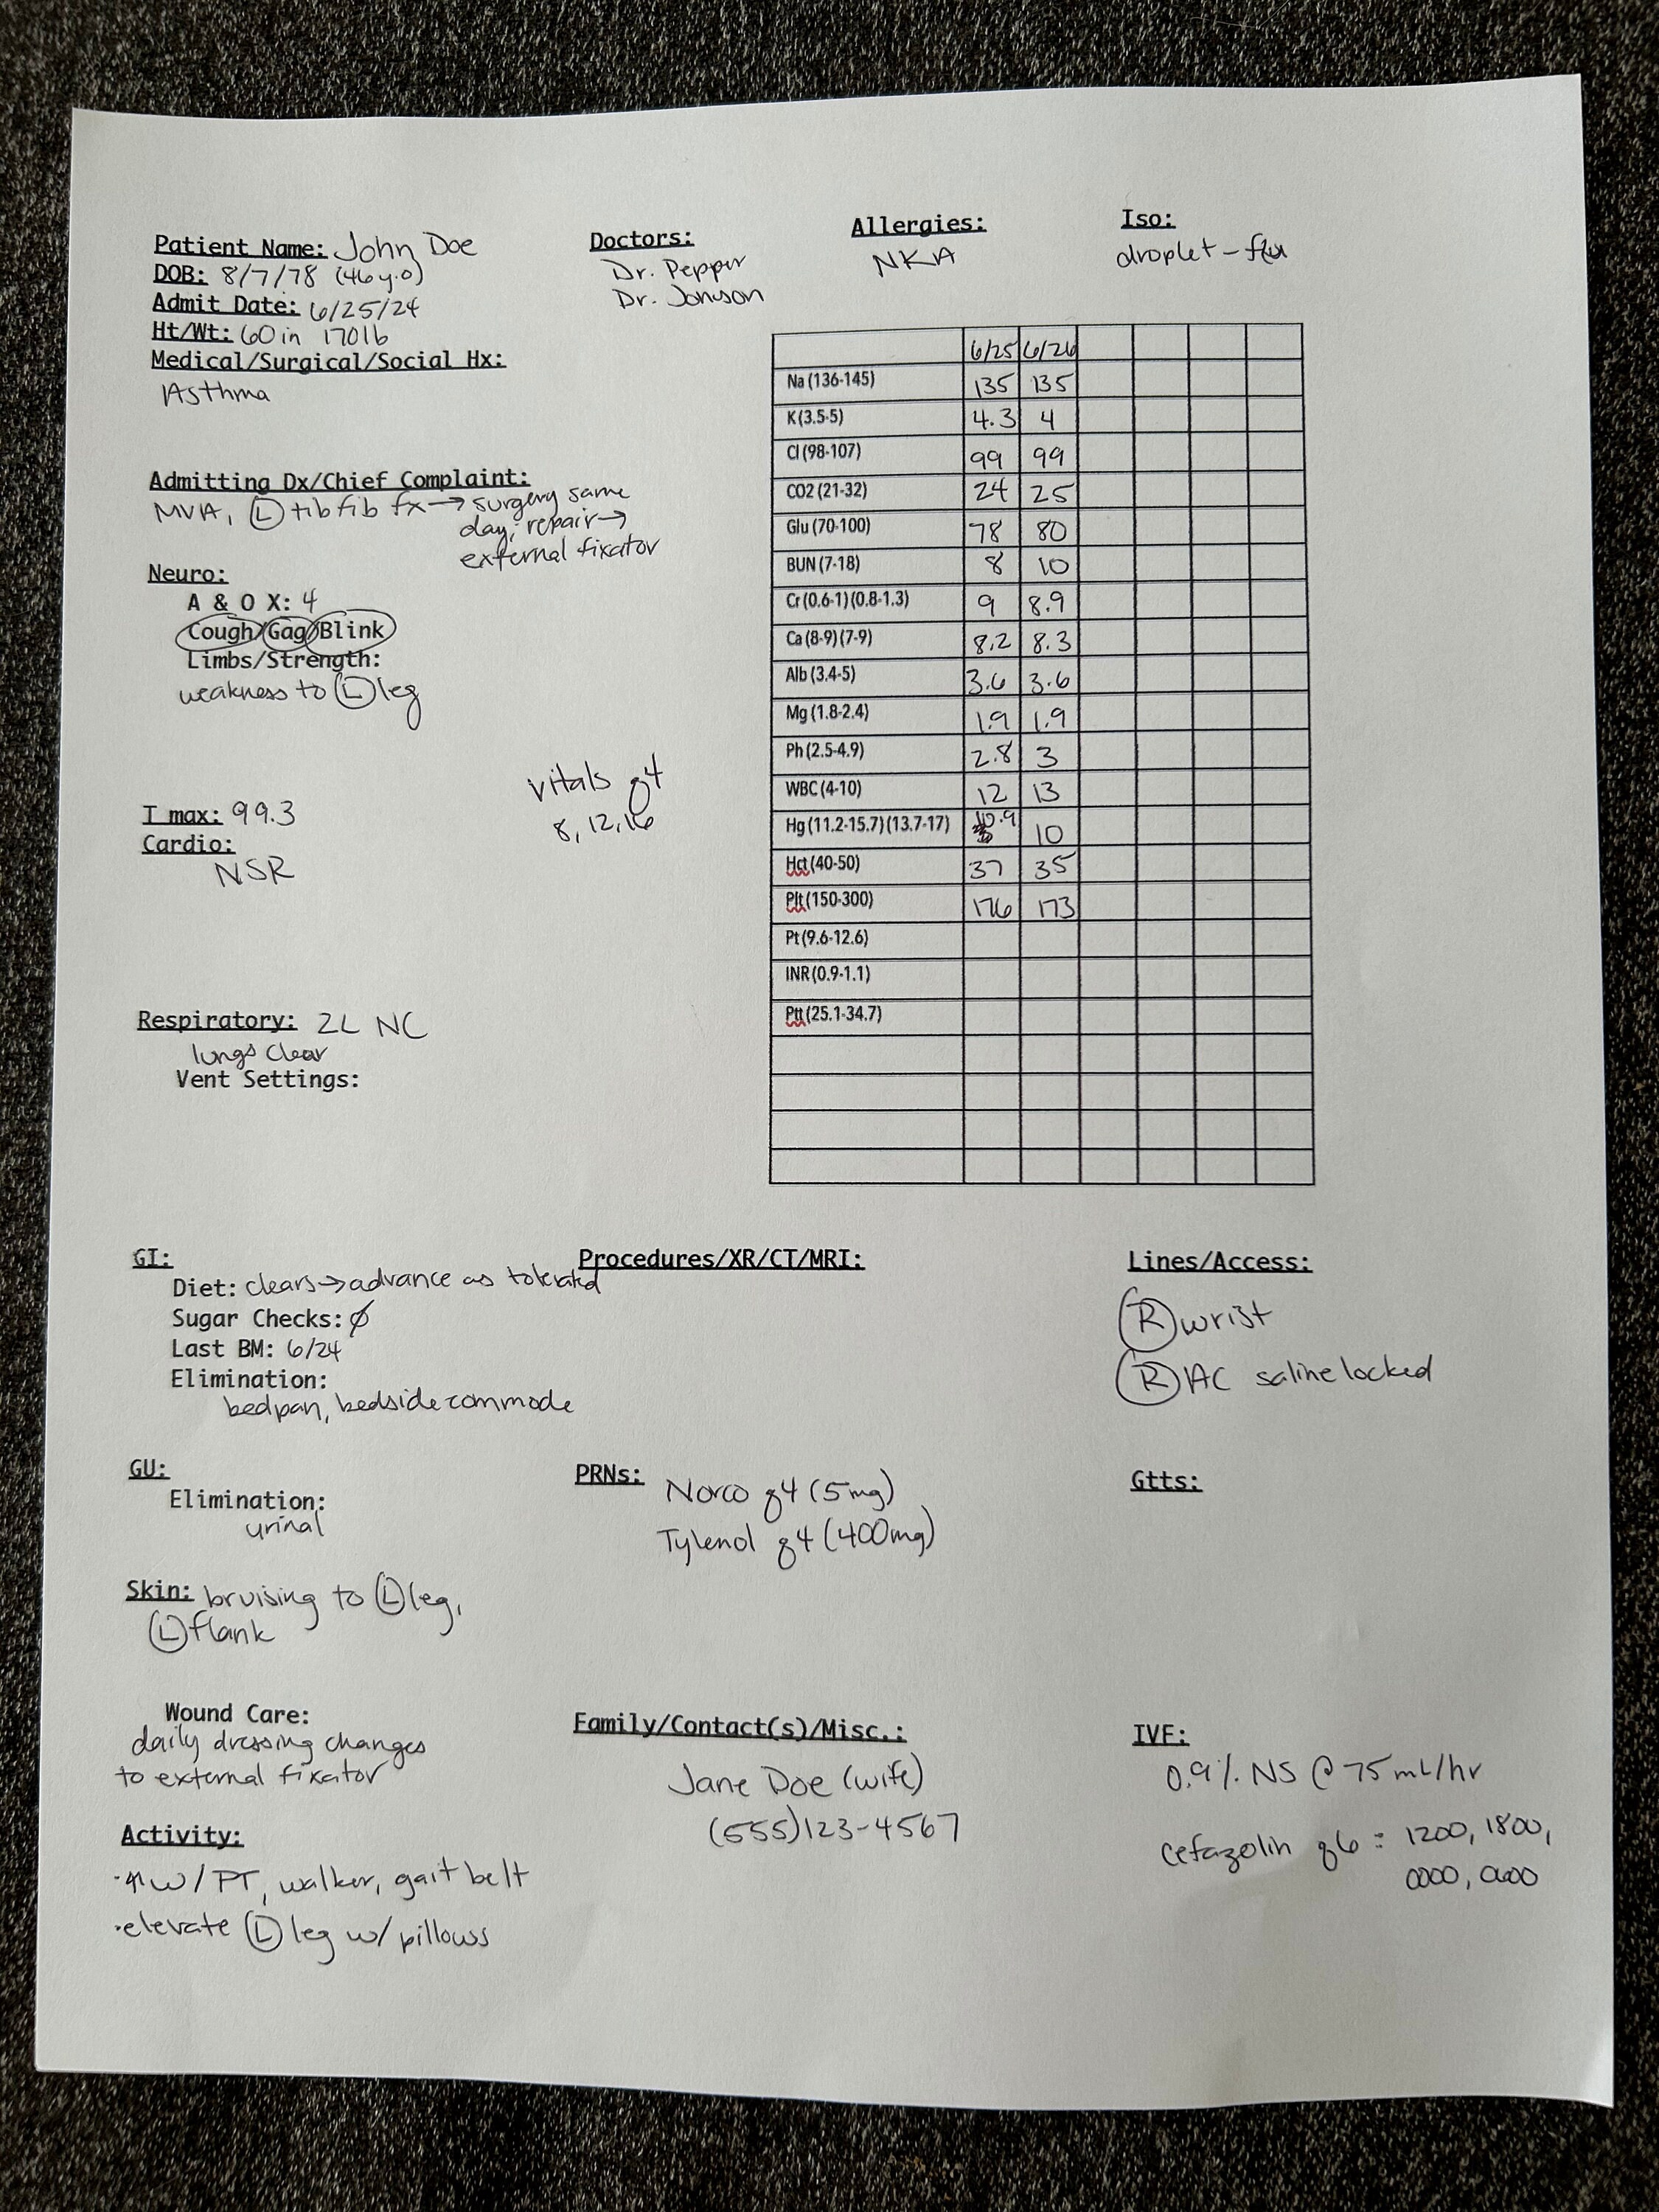 Patient Name: John Doe
DOB: 8/7/78 (46 y.o)
Admit Date: 6/25/24
Ht/Wt: 60 in 170lb
Medical/Surgical/Social Hx:
Asthma
Doctors:
Dr. Pepper
Dr. Jonson
Allergies:
NKA
Iso:
droplet - flu
Admitting Dx/Chief Complaint:
MVA, Ⓛ tib fib fx → surgery same
day; repair →
external fixator
Neuro:
A & O X: 4
Cough/Gag/Blink
Limbs/Strength:
weakness to Ⓛ leg
vitals q4
8, 12, 16
T max: 99.3
Cardio:
NSR
Respiratory: 2L NC
lungs clear
Vent Settings:
6/25 6/26
Na (136-145) 135 135
K (3.5-5) 4.3 4
Cl (98-107) 99 99
CO2 (21-32) 24 25
Glu (70-100) 78 80
BUN (7-18) 8 10
Cr (0.6-1) (0.8-1.3) 9 8.9
Ca (8-9) (7-9) 8.2 8.3
Alb (3.4-5) 3.6 3.6
Mg (1.8-2.4) 1.9 1.9
Ph (2.5-4.9) 2.8 3
WBC (4-10) 12 13
Hg (11.2-15.7) (13.7-17) 10.9 10
Hct (40-50) 37 35
Plt (150-300) 176 173
Pt (9.6-12.6)
INR (0.9-1.1)
Ptt (25.1-34.7)
GI:
Diet: clears → advance as tolerated
Sugar Checks: ∅
Last BM: 6/24
Elimination:
bedpan, bedside commode
Procedures/XR/CT/MRI:
Lines/Access:
Ⓡ wrist
Ⓡ AC saline locked
GU:
Elimination:
urinal
PRNs: Norco q4 (5mg)
Tylenol q4 (400mg)
Gtts:
Skin: bruising to Ⓛ leg,
Ⓛ flank
Wound Care:
daily dressing changes
to external fixator
Family/Contact(s)/Misc.:
Jane Doe (wife)
(555)123-4567
IVF:
0.9% NS @ 75 mL/hr
cefazolin q6 : 1200, 1800,
0000, 0600
Activity:
·↑ w/ PT, walker, gait belt
·elevate Ⓛ leg w/ pillows